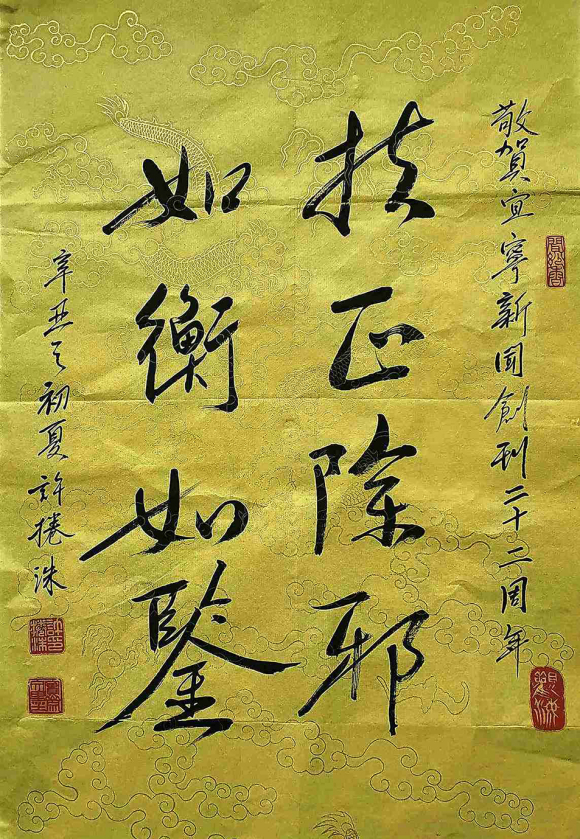 敬賀宜寧新聞創刊二十二周年
扶正除邪
如衡如鑒
辛丑之初夏許捲洙